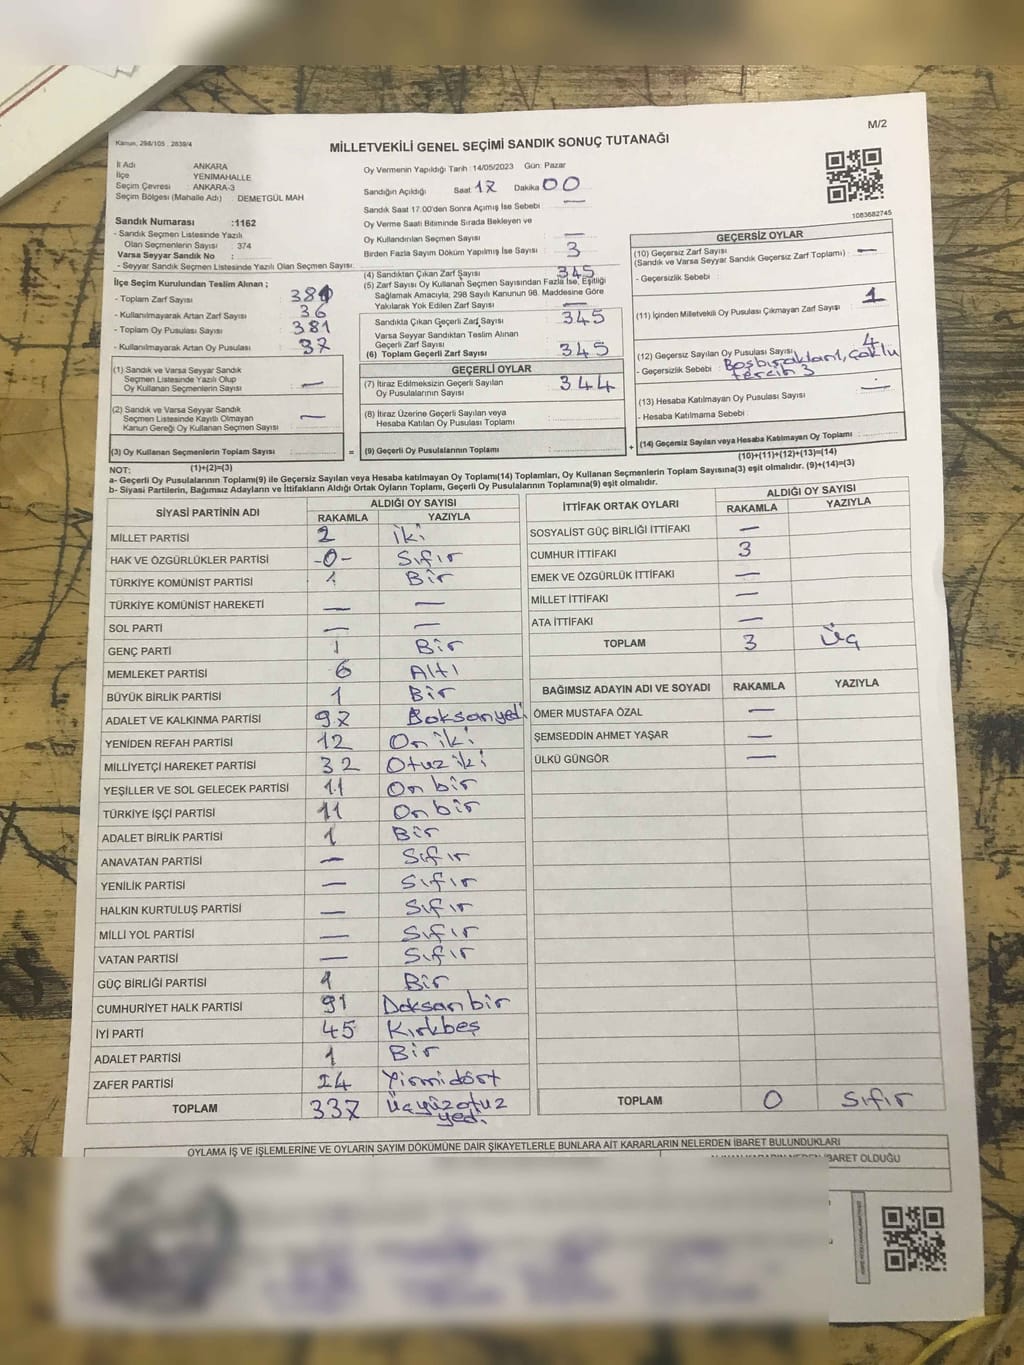 Kanun, 298/105 : 2839/4
M/2
MİLLETVEKİLİ GENEL SEÇİMİ SANDIK SONUÇ TUTANAĞI
İl Adı ANKARA
İlçe YENİMAHALLE
Seçim Çevresi : ANKARA-3
Seçim Bölgesi (Mahalle Adı) : DEMETGÜL MAH
Sandık Numarası :1162
- Sandık Seçmen Listesinde Yazılı
Olan Seçmenlerin Sayısı : 374
Varsa Seyyar Sandık No :
- Seyyar Sandık Seçmen Listesinde Yazılı Olan Seçmen Sayısı:
Oy Vermenin Yapıldığı Tarih : 14/05/2023 Gün: Pazar
Sandığın Açıldığı Saat 17 Dakika 00
Sandık Saat 17.00'den Sonra Açılmış İse Sebebi : —
Oy Verme Saati Bitiminde Sırada Bekleyen ve
Oy Kullandırılan Seçmen Sayısı : —
Birden Fazla Sayım Döküm Yapılmış İse Sayısı : 3
1083682745
İlçe Seçim Kurulundan Teslim Alınan ;
- Toplam Zarf Sayısı : 381
- Kullanılmayarak Artan Zarf Sayısı : 36
- Toplam Oy Pusulası Sayısı : 381
- Kullanılmayarak Artan Oy Pusulası : 37
(1) Sandık ve Varsa Seyyar Sandık
Seçmen Listesinde Yazılı Olup
Oy Kullanan Seçmenlerin Sayısı : —
(2) Sandık ve Varsa Seyyar Sandık
Seçmen Listesinde Kayıtlı Olmayan
Kanun Gereği Oy Kullanan Seçmen Sayısı : —
(3) Oy Kullanan Seçmenlerin Toplam Sayısı :
(1)+(2)=(3)
(4) Sandıktan Çıkan Zarf Sayısı : 345
(5) Zarf Sayısı Oy Kullanan Seçmen Sayısından Fazla İse, Eşitliği
Sağlamak Amacıyla, 298 Sayılı Kanunun 98. Maddesine Göre
Yakılarak Yok Edilen Zarf Sayısı : —
Sandıkta Çıkan Geçerli Zarf Sayısı : 345
Varsa Seyyar Sandıktan Teslim Alınan
Geçerli Zarf Sayısı :
(6) Toplam Geçerli Zarf Sayısı : 345
GEÇERLİ OYLAR
(7) İtiraz Edilmeksizin Geçerli Sayılan
Oy Pusulalarının Sayısı : 344
(8) İtiraz Üzerine Geçerli Sayılan veya
Hesaba Katılan Oy Pusulası Toplamı :
= (9) Geçerli Oy Pusulalarının Toplamı : +
GEÇERSİZ OYLAR
(10) Geçersiz Zarf Sayısı
(Sandık ve Varsa Seyyar Sandık Geçersiz Zarf Toplamı) : —
- Geçersizlik Sebebi :
(11) İçinden Milletvekili Oy Pusulası Çıkmayan Zarf Sayısı : 1
(12) Geçersiz Sayılan Oy Pusulası Sayısı : 4
- Geçersizlik Sebebi : Boş bırakılan 1, çoklu
tercih 3
(13) Hesaba Katılmayan Oy Pusulası Sayısı : —
- Hesaba Katılmama Sebebi :
(14) Geçersiz Sayılan veya Hesaba Katılmayan Oy Toplamı :
(10)+(11)+(12)+(13)=(14)
NOT:
a- Geçerli Oy Pusulaları Toplamı(9) ile Geçersiz Sayılan veya Hesaba katılmayan Oy Toplamı(14) Toplamları, Oy Kullanan Seçmenlerin Toplam Sayısına(3) eşit olmalıdır. (9)+(14)=(3)
b- Siyasi Partilerin, Bağımsız Adayların ve İttifakların Aldığı Ortak Oyların Toplamı, Geçerli Oy Pusulalarının Toplamına(9) eşit olmalıdır.
SİYASİ PARTİNİN ADI ALDIĞI OY SAYISI
RAKAMLA YAZIYLA
MİLLET PARTİSİ 2 iki
HAK VE ÖZGÜRLÜKLER PARTİSİ -0- Sıfır
TÜRKİYE KOMÜNİST PARTİSİ 1 Bir
TÜRKİYE KOMÜNİST HAREKETİ — —
SOL PARTİ — —
GENÇ PARTİ 1 Bir
MEMLEKET PARTİSİ 6 Altı
BÜYÜK BİRLİK PARTİSİ 1 Bir
ADALET VE KALKINMA PARTİSİ 97 Doksanyedi
YENİDEN REFAH PARTİSİ 12 On iki
MİLLİYETÇİ HAREKET PARTİSİ 32 Otuz iki
YEŞİLLER VE SOL GELECEK PARTİSİ 11 On bir
TÜRKİYE İŞÇİ PARTİSİ 11 On bir
ADALET BİRLİK PARTİSİ 1 Bir
ANAVATAN PARTİSİ — Sıfır
YENİLİK PARTİSİ — Sıfır
HALKIN KURTULUŞ PARTİSİ — Sıfır
MİLLİ YOL PARTİSİ — Sıfır
VATAN PARTİSİ — Sıfır
GÜÇ BİRLİĞİ PARTİSİ 1 Bir
CUMHURİYET HALK PARTİSİ 91 Doksan bir
İYİ PARTİ 45 Kırkbeş
ADALET PARTİSİ 1 Bir
ZAFER PARTİSİ 24 Yirmidört
TOPLAM 337 Üçyüzotuz
yedi
İTTİFAK ORTAK OYLARI ALDIĞI OY SAYISI
RAKAMLA YAZIYLA
SOSYALİST GÜÇ BİRLİĞİ İTTİFAKI —
CUMHUR İTTİFAKI 3
EMEK VE ÖZGÜRLÜK İTTİFAKI —
MİLLET İTTİFAKI —
ATA İTTİFAKI —
TOPLAM 3 Üç
BAĞIMSIZ ADAYIN ADI VE SOYADI RAKAMLA YAZIYLA
ÖMER MUSTAFA ÖZAL —
ŞEMSEDDİN AHMET YAŞAR —
ÜLKÜ GÜNGÖR —
TOPLAM 0 Sıfır
OYLAMA İŞ VE İŞLEMLERİNE VE OYLARIN SAYIM DÖKÜMÜNE DAİR ŞİKAYETLERLE BUNLARA AİT KARARLARIN NELERDEN İBARET BULUNDUKLARI
İBARET OLDUĞU